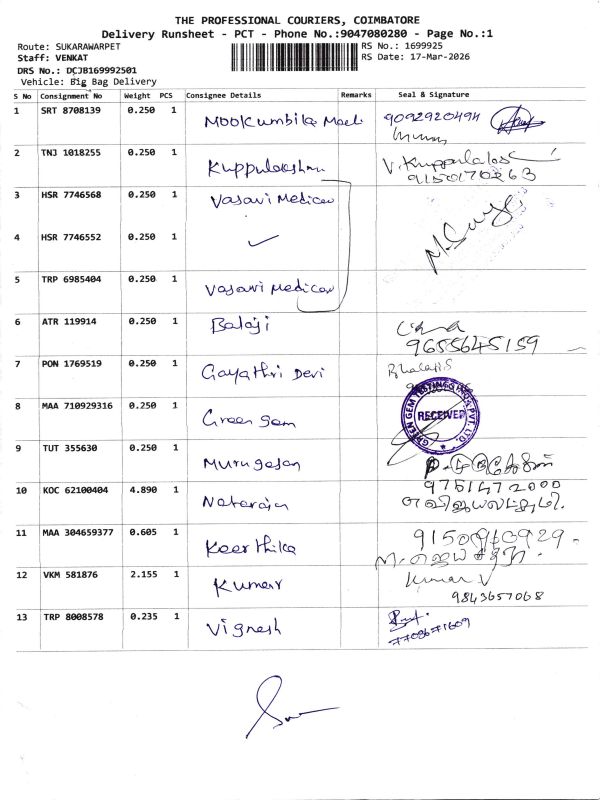 THE PROFESSIONAL COURIERS, COIMBATORE
Delivery Runsheet - PCT - Phone No.:9047080280 - Page No.:1
Route: SUKARAWARPET RS No.: 1699925
Staff: VENKAT RS Date: 17-Mar-2026
DRS No.: DCJB169992501
Vehicle: Big Bag Delivery
S No Consignment No Weight PCS Consignee Details Remarks Seal & Signature
1 SRT 8708139 0.250 1 Mookumbika 9092920494
2 TNJ 1018255 0.250 1 Kuppulakshmi
9150170263
3 HSR 7746568 0.250 1 Vasavi Medical
4 HSR 7746552 0.250 1 ✓
5 TRP 6985404 0.250 1 Vasavi Medical
6 ATR 119914 0.250 1 Balaji
9655645159
7 PON 1769519 0.250 1 Gayathri Devi
8 MAA 710929316 0.250 1 Green Gem GREEN GEM TESTING RECEIVED
9 TUT 355630 0.250 1 Murugesan
10 KOC 62100404 4.890 1 Nataraja 9751472000
11 MAA 304659377 0.605 1 Keerthika
12 VKM 581876 2.155 1 Kumar Kumar V
9843657068
13 TRP 8008578 0.235 1 Vignesh
7708671609